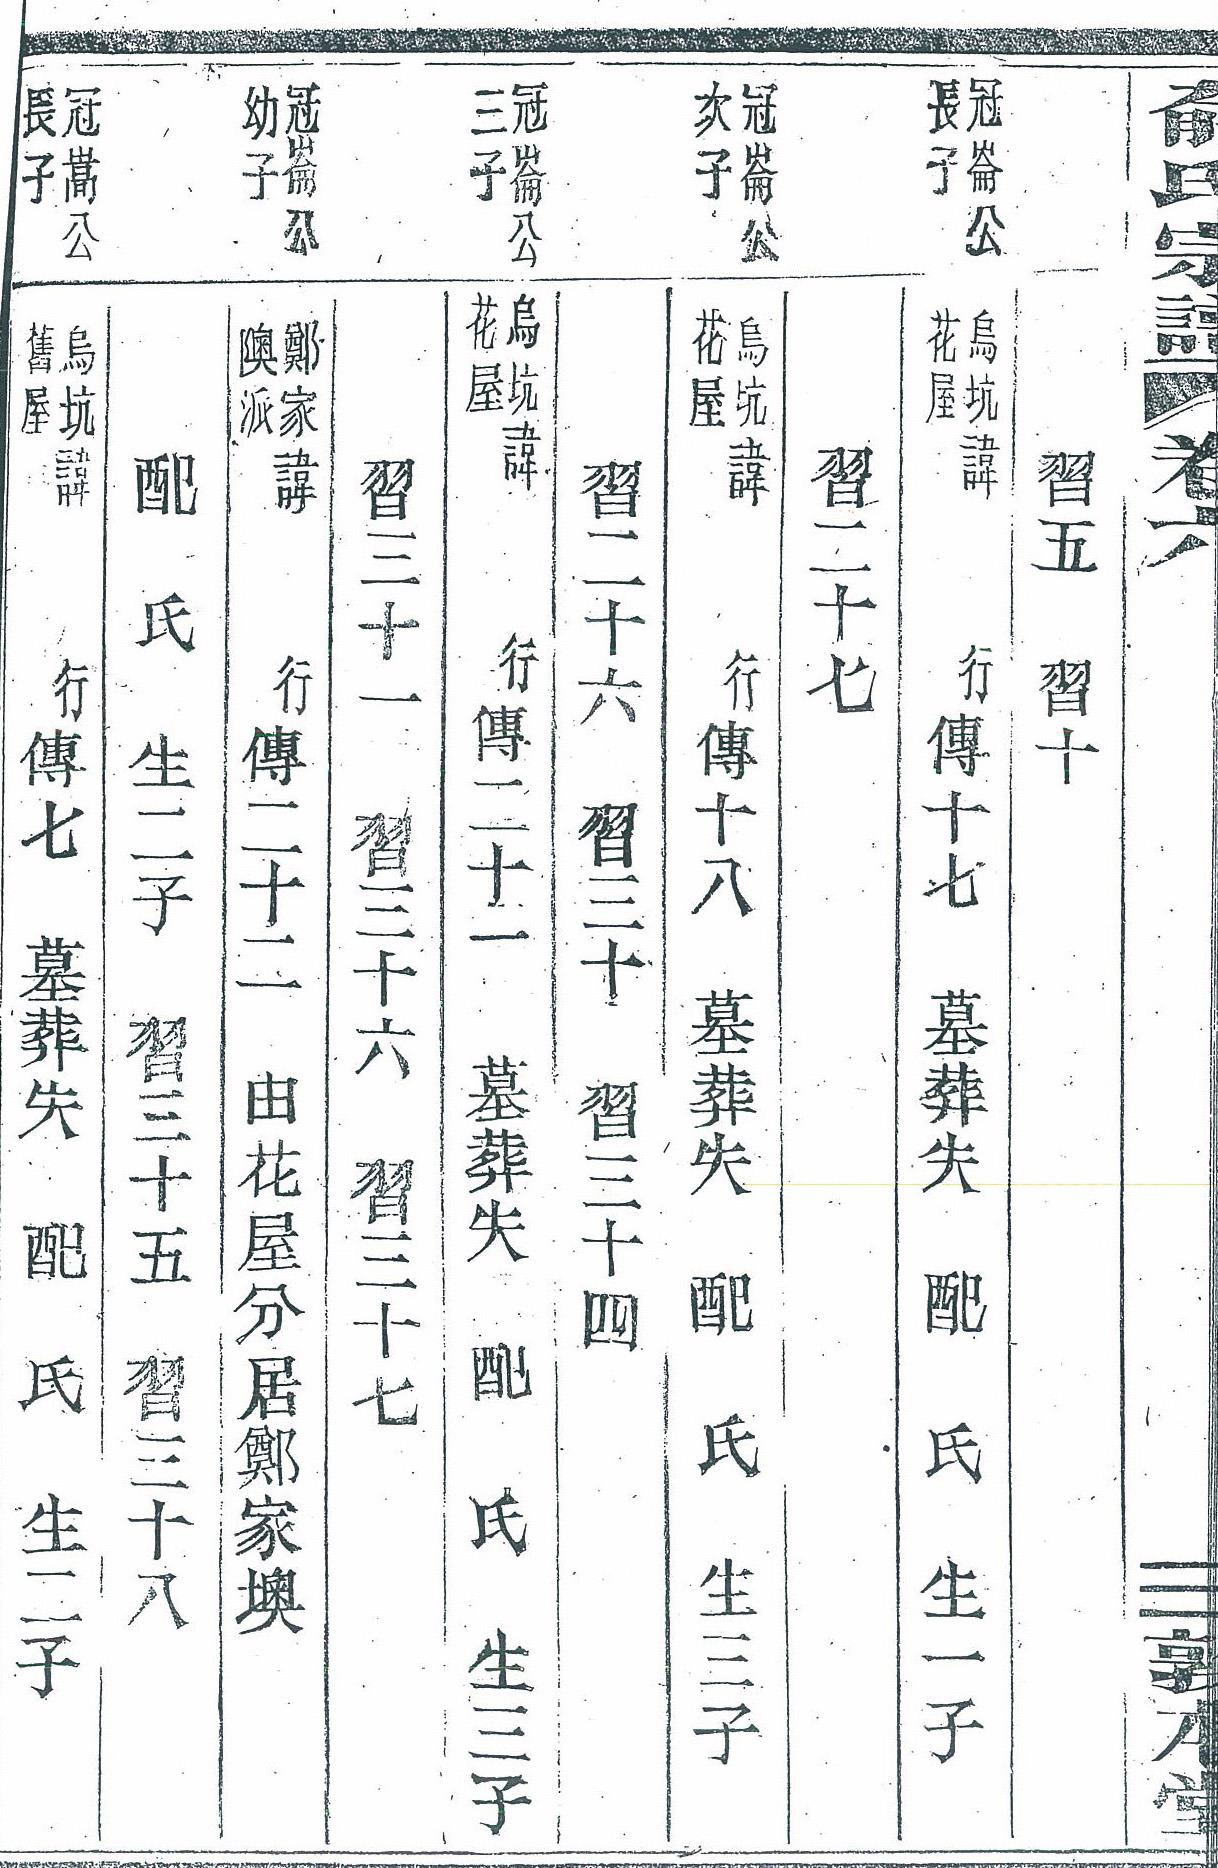 俞氏宗譜 卷六 三 敦本堂
習五 習十
冠崙公長子 烏坑花屋 諱 行傳十七 墓葬失 配 氏 生一子
習二十七
冠崙公次子 烏坑花屋 諱 行傳十八 墓葬失 配 氏 生三子
習二十六 習三十 習三十四
冠崙公三子 烏坑花屋 諱 行傳二十一 墓葬失 配 氏 生三子
習三十一 習三十六 習三十七
冠崙公幼子 鄭家隩派 諱 行傳二十二 由花屋分居鄭家墺
配 氏 生二子 習三十五 習三十八
冠嵩公長子 烏坑舊屋 諱 行傳七 墓葬失 配 氏 生二子